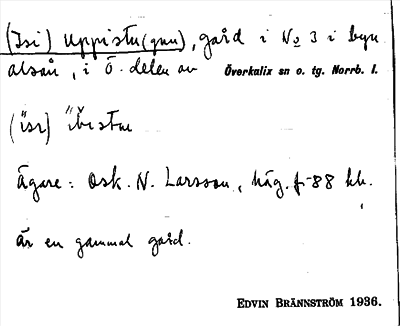 (Isi) Uppistu(gun), gård i No 3 i byn
alsån, i Ö. delen av Överkalix sn o. tg. Norrb. l.
Ägare: Osk. N. Larsson, häg. f. 88 hh.
är en gammal gård.
EDVIN BRÄNNSTRÖM 1936.